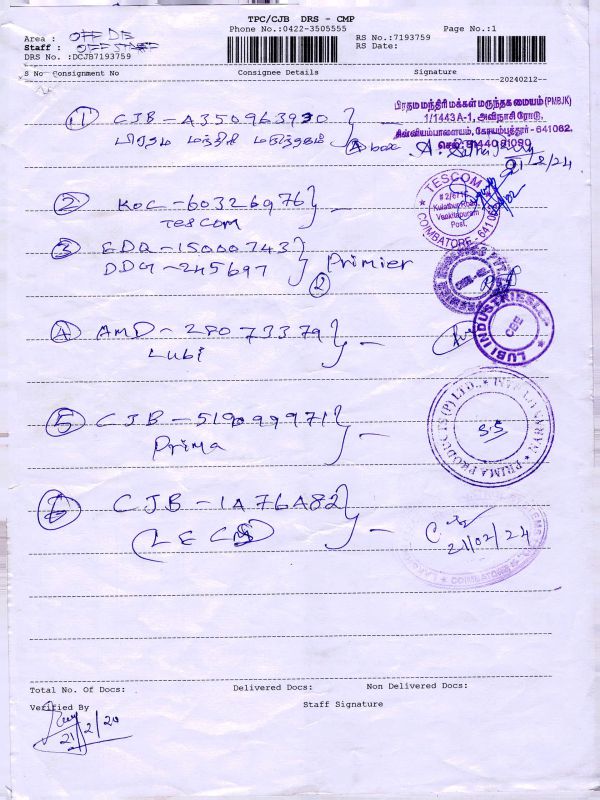 TPC/CJB DRS - CMP
Phone No.:0422-3505555
Page No.:1
Area : OFF DE
RS No.:7193759
Staff : OFF STAFF
RS Date:
DRS No. :DCJB7193759
S No Consignment No Consignee Details Signature
20240212--
1 CJB - A350963930
பிரதம மந்திரி மருந்தகம்
4 box
பிரதம மந்திரி மக்கள் மருந்தக மையம் (PMBJK)
1/1443 A-1, அவிநாசி ரோடு,
சின்னியம்பாளையம், கோயம்புத்தூர் - 641062.
21/2/24
2 KOC - 60326976
TESCOM
TESCOM
Venkitapuram
Post,
COIMBATORE - 641
3 EDQ - 15000743
DDG - 245697
Primier
2
4 AMD - 280733379
Lubi
LUBI INDUSTRIES LLP
CBE
5 CJB - 519099971
Prima
PRIMA PRODUCTS (P) LTD.,
S.S
6 CJB - 1A76A82
(LECS)
21/02/24
COIMBATORE
Total No. Of Docs: Delivered Docs: Non Delivered Docs:
Verified By Staff Signature
21/2/20